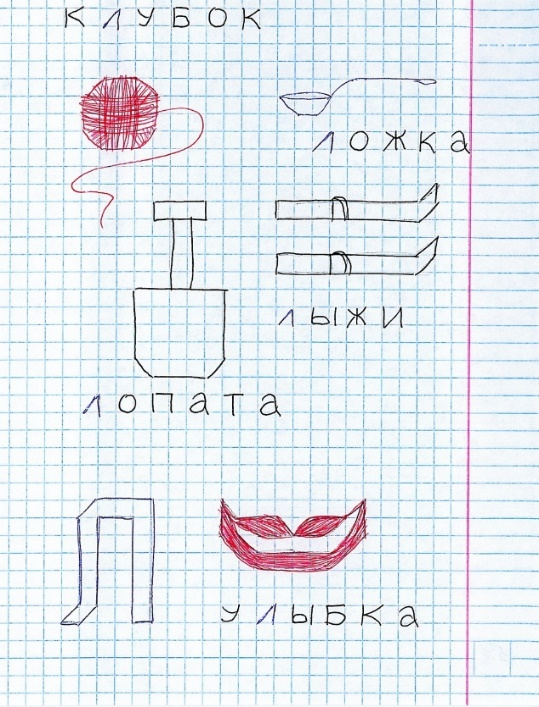 КЛУБОК
ЛОЖКА
ЛЫЖИ
ЛОПАТА
УЛЫБКА